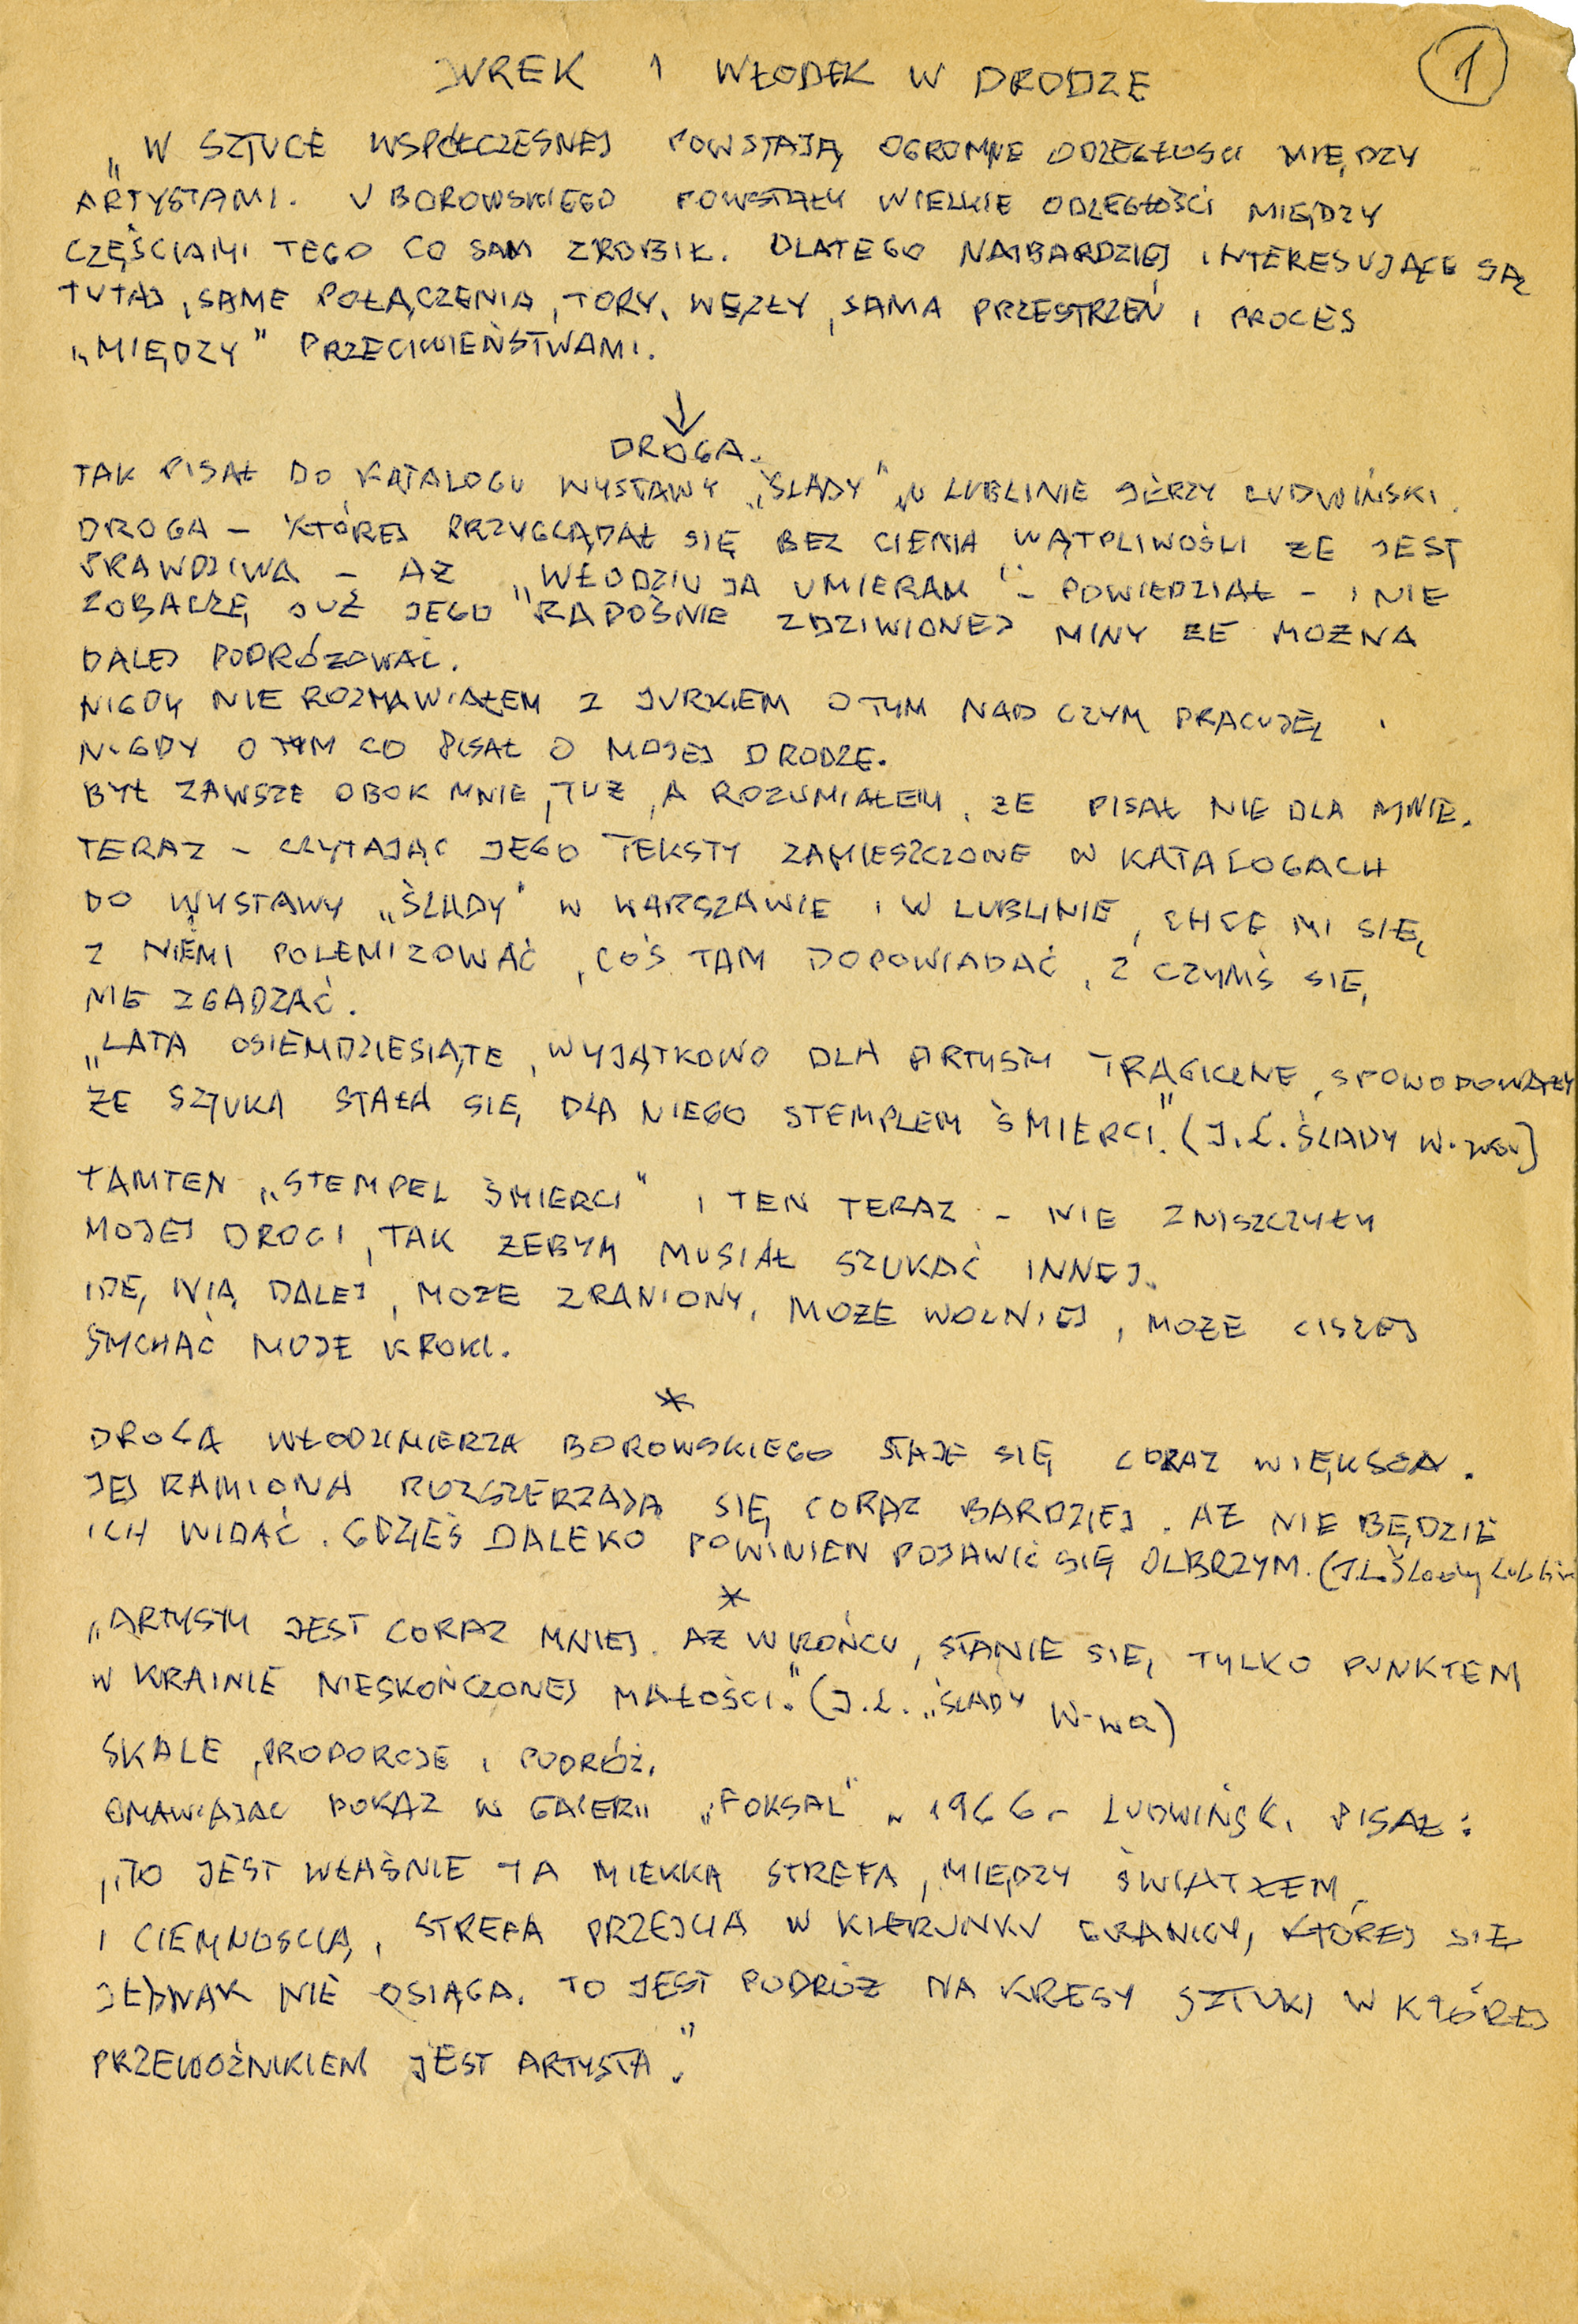 JUREK I WŁODEK W DRODZE
1
„W SZTUCE WSPÓŁCZESNEJ POWSTAJĄ OGROMNE ODLEGŁOŚCI MIĘDZY
ARTYSTAMI. U BOROWSKIEGO POWSTAŁY WIELKIE ODLEGŁOŚCI MIĘDZY
CZĘŚCIAMI TEGO CO SAM ZROBIŁ. DLATEGO NAJBARDZIEJ INTERESUJĄCE SĄ
TUTAJ, SAME POŁĄCZENIA, TORY, WĘZŁY, SAMA PRZESTRZEŃ I PROCES
„MIĘDZY” PRZECIWIEŃSTWAMI.
↓
DROGA.
TAK PISAŁ DO KATALOGU WYSTAWY „ŚLADY” W LUBLINIE JERZY LUDWIŃSKI.
DROGA – KTÓREJ PRZYGLĄDAŁ SIĘ BEZ CIENIA WĄTPLIWOŚCI ŻE JEST
PRAWDZIWA – AŻ „WŁODZIU JA UMIERAM” – POWIEDZIAŁ – I NIE
ZOBACZĘ JUŻ JEGO RADOŚNIE ZDZIWIONEJ MINY ŻE MOŻNA
DALEJ PODRÓŻOWAĆ.
NIGDY NIE ROZMAWIAŁEM Z JURKIEM O TYM NAD CZYM PRACUJĘ I
NIGDY O TYM CO PISAŁ O MOJEJ DRODZE.
BYŁ ZAWSZE OBOK MNIE, TUŻ, A ROZUMIAŁEM, ŻE PISAŁ NIE DLA MNIE.
TERAZ – CZYTAJĄC JEGO TEKSTY ZAMIESZCZONE W KATALOGACH
DO WYSTAWY „ŚLADY” W WARSZAWIE I W LUBLINIE, CHCE MI SIĘ
Z NIEMI POLEMIZOWAĆ, COŚ TAM DOPOWIADAĆ, Z CZYMŚ SIĘ
NIE ZGADZAĆ.
„LATA OSIEMDZIESIĄTE, WYJĄTKOWO DLA ARTYSTY TRAGICZNE, SPOWODOWAŁY
ŻE SZTUKA STAŁA SIĘ DLA NIEGO STEMPLEM ŚMIERCI.” (J.L. ŚLADY W-wa)
TAMTEN „STEMPEL ŚMIERCI” I TEN TERAZ – NIE ZNISZCZYŁY
MOJEJ DROGI, TAK ŻEBYM MUSIAŁ SZUKAĆ INNEJ.
IDĘ NIĄ DALEJ, MOŻE ZRANIONY, MOŻE WOLNIEJ, MOŻE CISZEJ
SŁYCHAĆ MOJE KROKI.
*
DROGA WŁODZIMIERZA BOROWSKIEGO STAJE SIĘ CORAZ WIĘKSZA.
JEJ RAMIONA ROZSZERZAJĄ SIĘ CORAZ BARDZIEJ. AŻ NIE BĘDZIE
ICH WIDAĆ. GDZIEŚ DALEKO POWINIEN POJAWIĆ SIĘ OLBRZYM. (J.L. Ślady Lublin
*
„ARTYSTY JEST CORAZ MNIEJ. AŻ W KOŃCU, STANIE SIĘ TYLKO PUNKTEM
W KRAINIE NIESKOŃCZONEJ MAŁOŚCI.” (J.L. „ŚLADY W-wa)
SKALE, PROPORCJE I PODRÓŻ.
OMAWIAJĄC POKAZ W GALERII „FOKSAL” w 1966 – LUDWIŃSKI PISAŁ:
„TO JEST WŁAŚNIE TA MIĘKKA STREFA, MIĘDZY ŚWIATŁEM
I CIEMNOŚCIĄ, STREFA PRZEJŚCIA W KIERUNKU GRANICY, KTÓREJ SIĘ
JEDNAK NIE OSIĄGA. TO JEST PODRÓŻ NA KRESY SZTUKI W KTÓREJ
PRZEWOŹNIKIEM JEST ARTYSTA.”